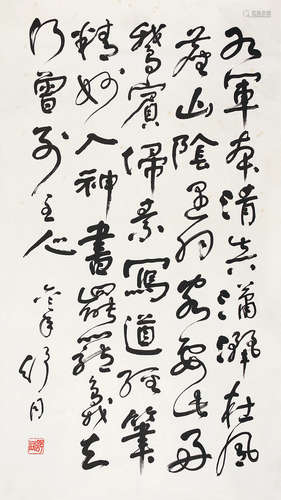 右軍本清真瀟灑在風
塵山陰遇羽客要此好
鵞賓掃素寫道經筆
精妙入神書罷籠鵞去
何曾別主人
舒同